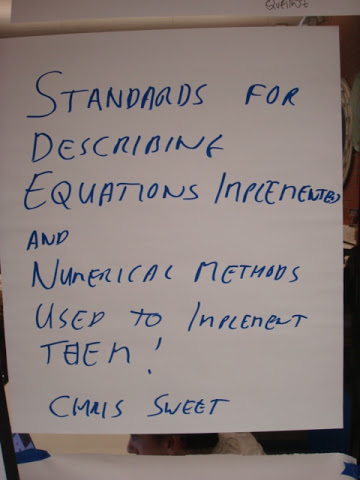 STANDARDS FOR
DESCRIBING
EQUATIONS IMPLEMENTED
AND
NUMERICAL METHODS
USED TO IMPLEMENT
THEM!
CHRIS SWEET